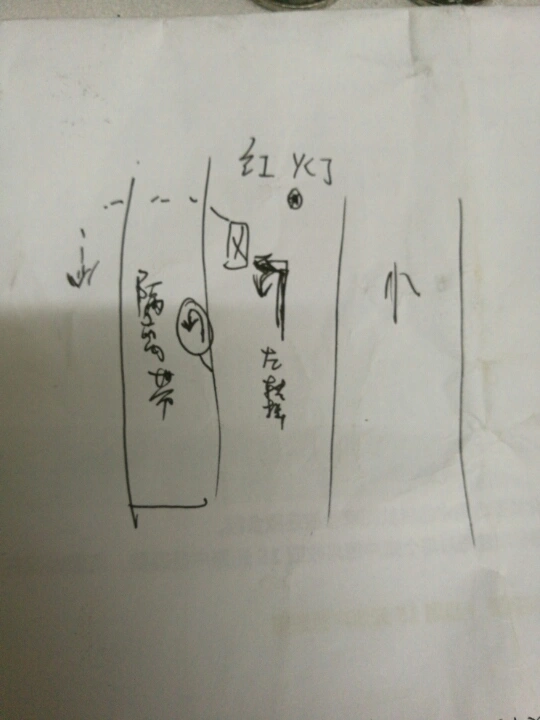 红灯
隔离带
左转